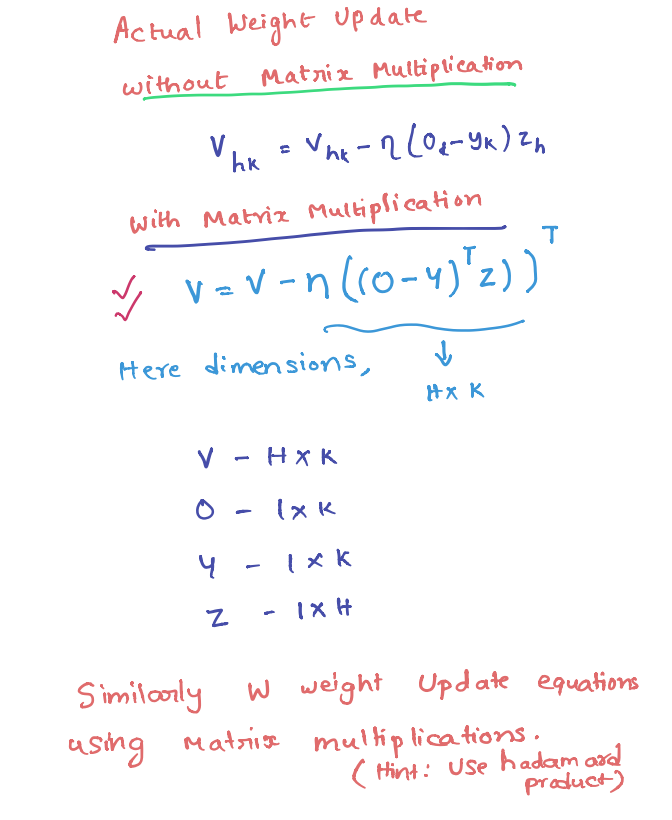 Actual Weight Update
without Matrix Multiplication
V_hk = V_hk - η (O_k - y_k) z_h
With Matrix Multiplication
V = V - η ((O - y)^T z))^T
Here dimensions,
↓
H x K
V - H x K
O - 1 x K
y - 1 x K
z - 1 x H
Similarly W weight Update equations
using Matrix multiplications.
(Hint: Use hadamard
product)